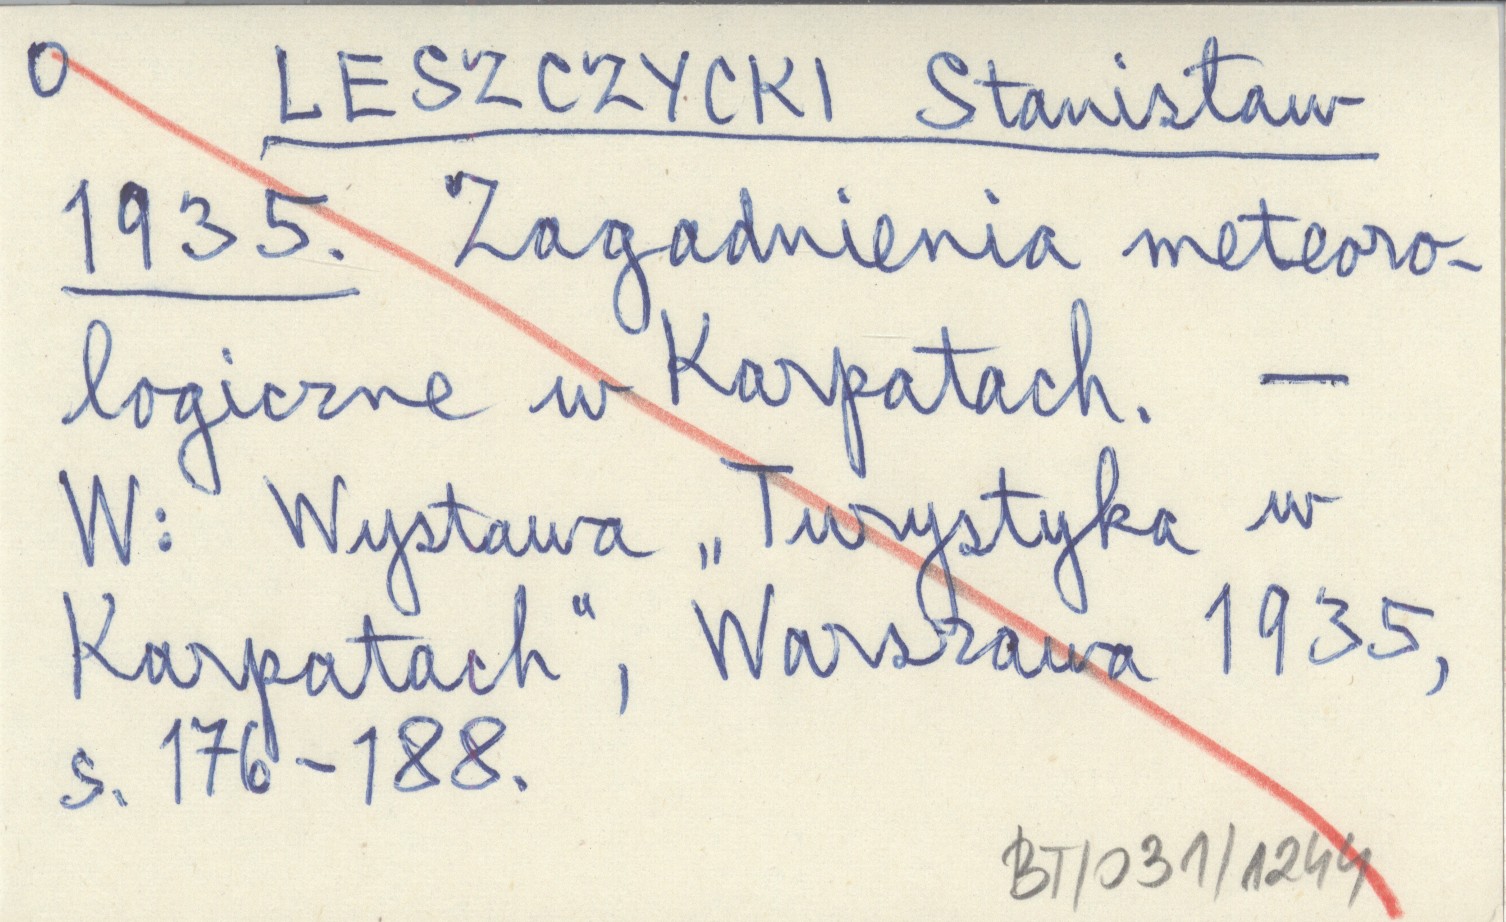 O LESZCZYCKI Stanisław
1935. Zagadnienia meteoro-
logiczne w Karpatach. —
W: Wystawa „Turystyka w
Karpatach", Warszawa 1935,
s. 176-188.
BT/031/1244